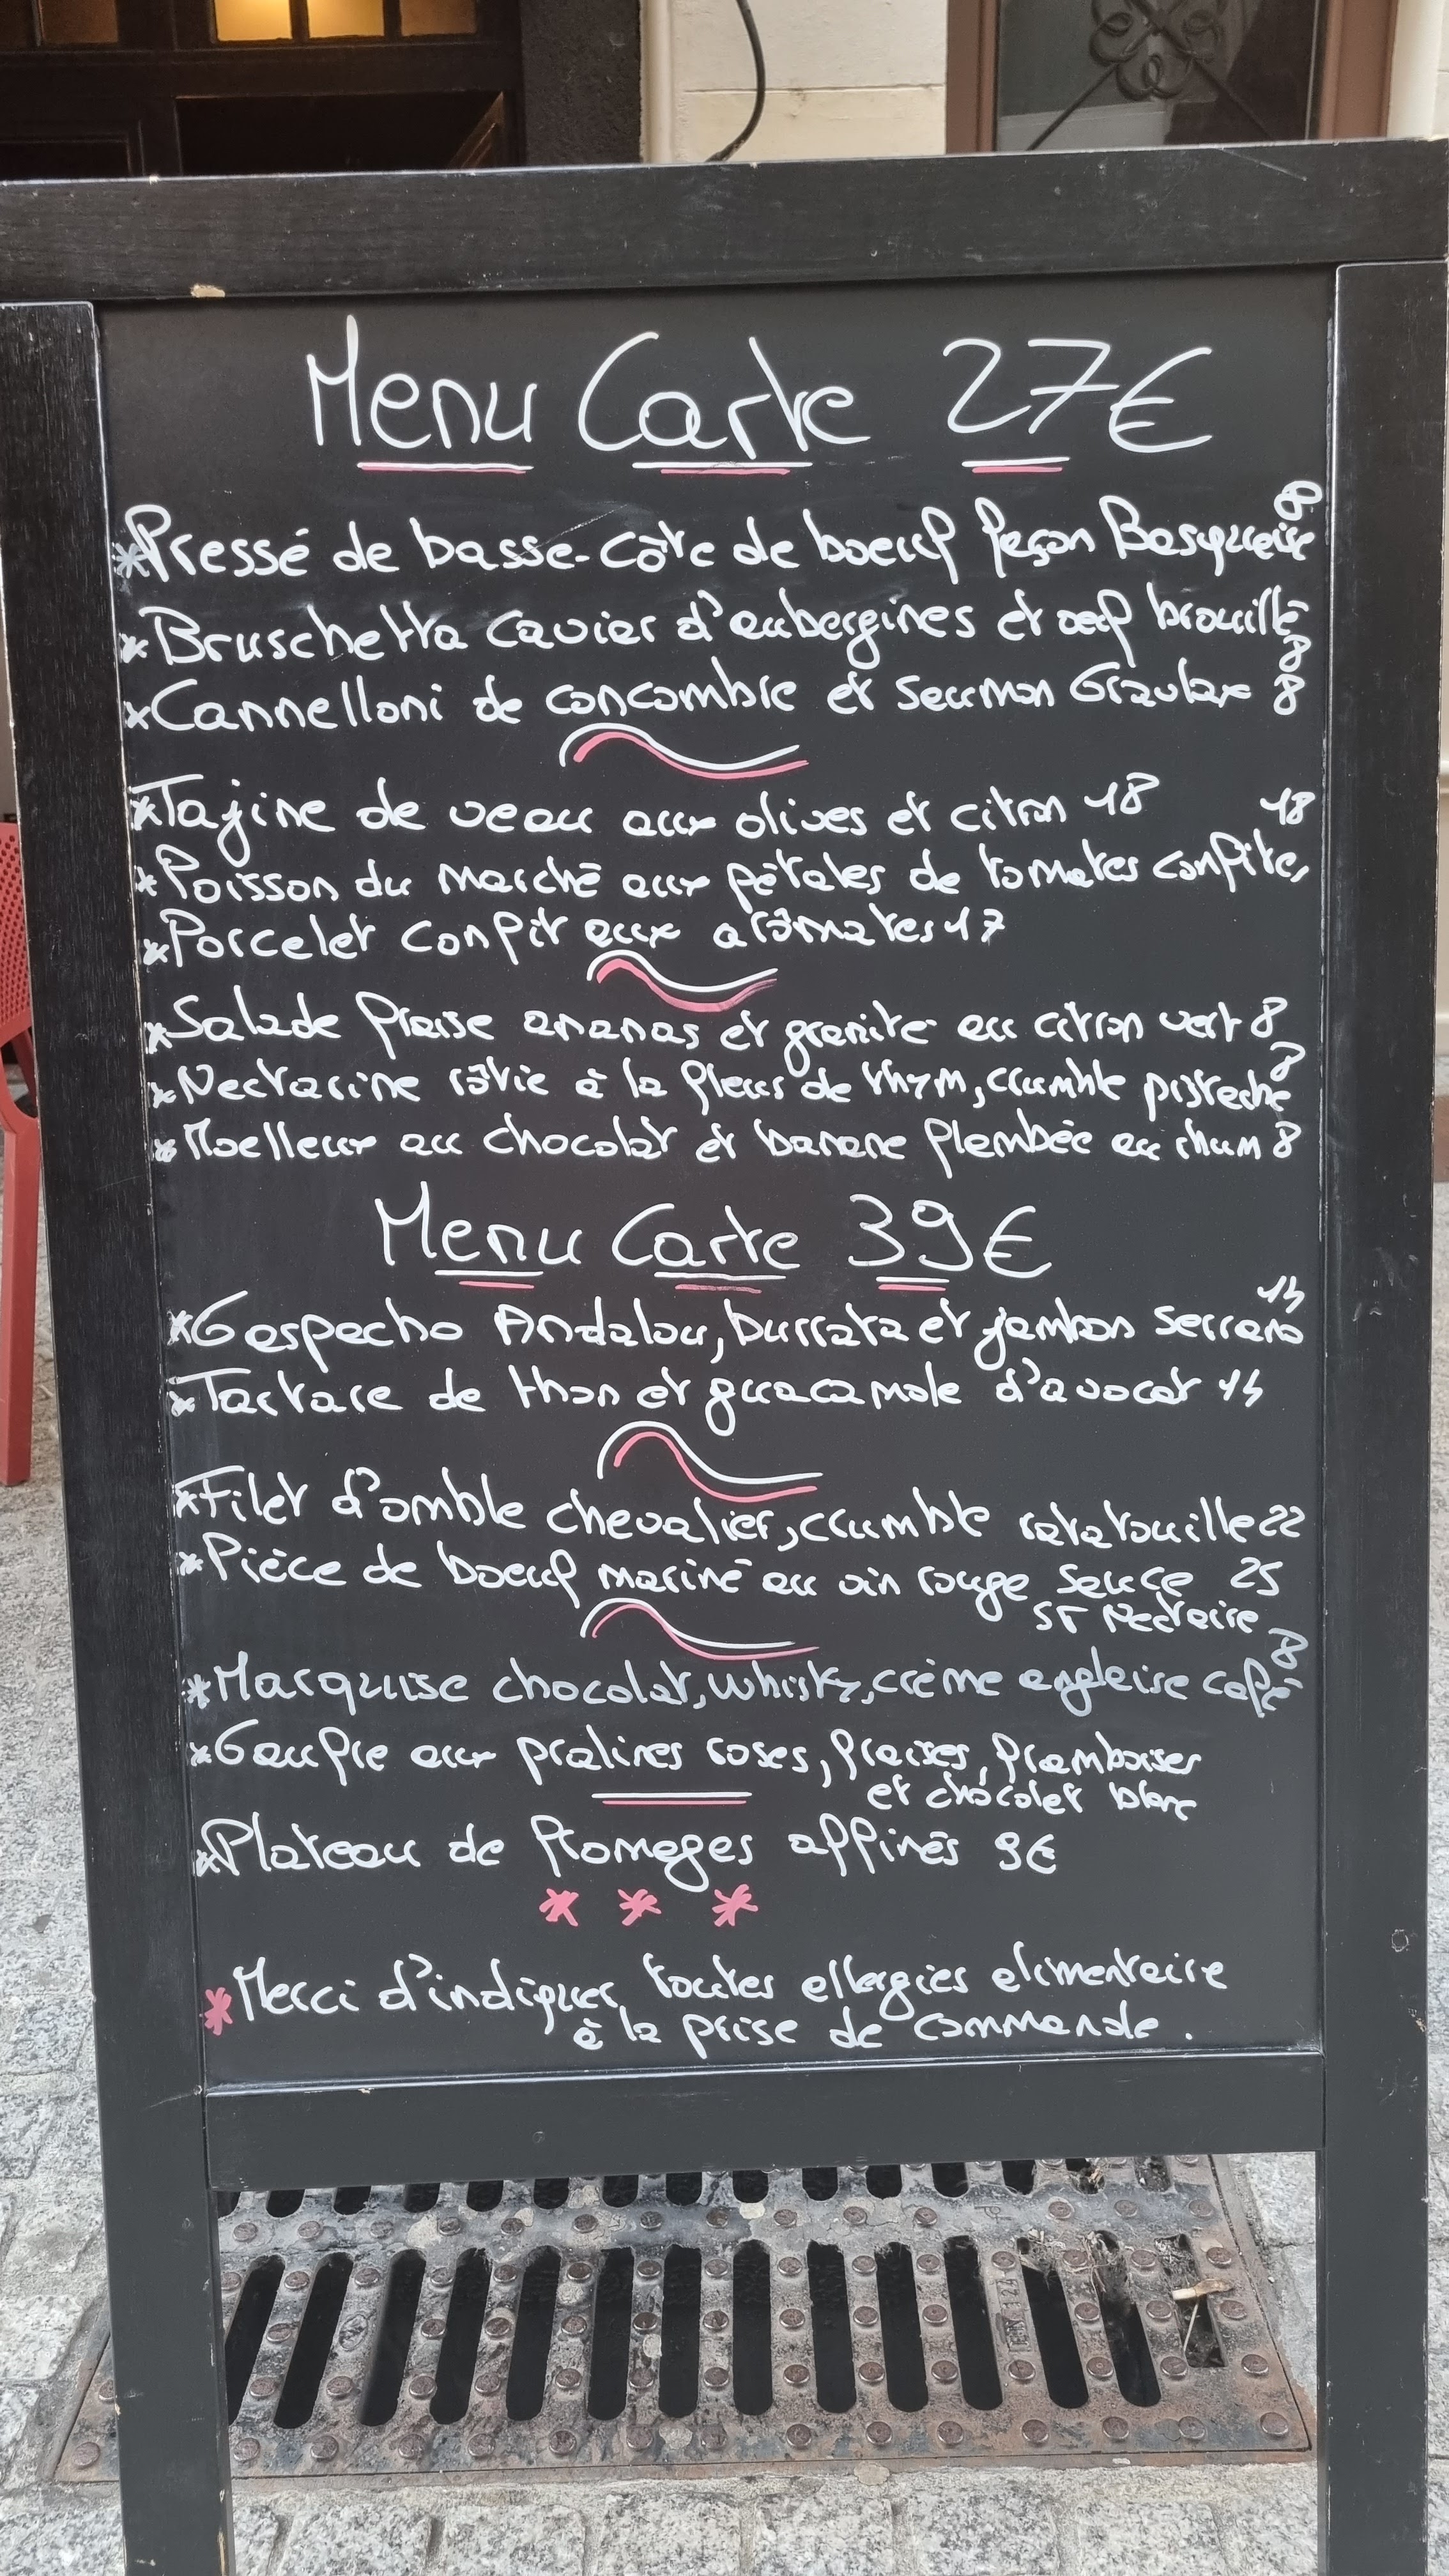 Menu Carte 27€
*Pressé de basse-côte de boeuf façon Basquaise 8
*Bruschetta caviar d'aubergines et oeuf brouillé 8
*Cannelloni de concombre et saumon Gravlax 8
*Tajine de veau aux olives et citron 18
*Poisson du marché aux pétales de tomates confites 18
*Porcelet confit aux arômates 17
*Salade fraise ananas et granité au citron vert 8
*Nectarine rôtie à la fleur de thym, crumble pistache 8
*Moelleux au chocolat et banane flambée au rhum 8
Menu Carte 39€
*Gaspacho Andalou, burrata et jambon Serrano 14
*Tartare de thon et guacamole d'avocat 14
*Filet d'omble chevalier, crumble ratatouille 22
*Pièce de boeuf mariné au vin rouge sauce 25
ST Nectaire
*Marquise chocolat, whisky, crème anglaise café 8
*Gaufre aux pralines roses, fraises, framboises
et chocolat blanc
*Plateau de fromages affinés 9€
* * *
*Merci d'indiquer toutes allergies alimentaire
à la prise de commande.